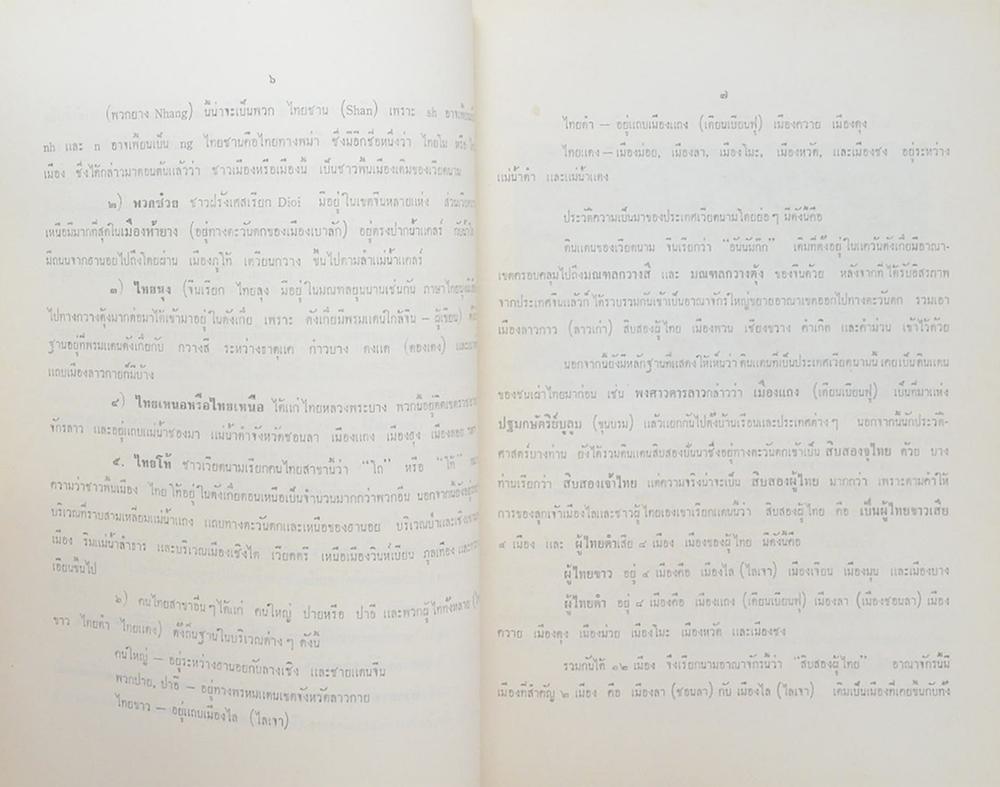 ๖
(พวกยาง Nhang) นี้น่าจะเป็นพวก ไทยชาน (Shan) เพราะ sh อาจเพี้ยนเป็น
nh และ n อาจเพี้ยนเป็น ng ไทยชานคือไทยทางพม่า ซึ่งมีอีกชื่อหนึ่งว่า ไทยโม หรือ
เมือง ซึ่งได้กล่าวมาตอนต้นแล้วว่า ชาวเมืองหรือเมืองนี้ เป็นชาวพื้นเมืองเดิมของเวียดนาม
๒) พวกช่วย ชาวฝรั่งเศสเรียก Dioi มีอยู่ในเขตจีนหลายแห่ง ส่วนเวียดนาม
เหนือมีมากที่สุดในเมืองห้ายาง (อยู่ทางตะวันตกของเมืองเบาลัก) อยู่ตรงปากน้ำแคลร์ กับน้ำ
มีถนนจากฮานอยไปถึงโดยผ่าน เมืองภูโท้ เตวียนกวาง ขึ้นไปตามลำแม่น้ำแคลร์
๓) ไทยนุง (จีนเรียก ไทยลุง มีอยู่ในมณฑลยูนนานเช่นกัน ภาษาไทยนุง
ไปทางกวางตุ้งมากต่อมาได้เข้ามาอยู่ในตังเกี๋ย เพราะ ตังเกี๋ยมีพรมแดนใกล้จีน – ผู้เขียน) ตั้ง
ฐานอยู่ที่พรมแดนตังเกี๋ยกับ กวางสี ระหว่างธาตุแค ก๋าวบาง ดงแด (ดองเดง) และ
แถบเมืองลาวกายก็มีบ้าง
๔) ไทยเหนอหรือไทยเหนือ ได้แก่ไทยหลวงพระบาง พวกนี้อยู่ติดเขตราชอา
จักรลาว และอยู่แถบแม่น้ำซองมา แม่น้ำดำจังหวัดซอนลา เมืองแถง เมืองฮุง
๕. ไทยโท้ ชาวเวียดนามเรียกคนไทยสาขานี้ว่า “โถ” หรือ “โท้”
ความว่าชาวพื้นเมือง ไทยโท้อยู่ในตังเกี๋ยตอนเหนือเป็นจำนวนมากกว่าพวกอื่น นอกจากนี้ยังอยู่
บริเวณที่ราบสามเหลี่ยมแม่น้ำแดง แถบทางตะวันตกและเหนือของฮานอย บริเวณป่าและเชิงเขา
เมือง ริมแม่น้ำลำธาร และบริเวณเมืองเชิงไต เวียดตรี เหนือเมืองวินห์เบียน ภูลเทือง และ
เอียนขึ้นไป
๖) คนไทยสาขาอื่นๆ ได้แก่ คน์ใหญ่ ปายหรือ ปาอี และพวกผู้ไททั้งหลาย
ขาว ไทยดำ ไทยแดง) ตั้งถิ่นฐานในบริเวณต่างๆ ดังนี้
คน์ใหญ่ – อยู่ระหว่างฮานอยกับลางเชิง และชายแดนจีน
พวกปาย, ปาอี – อยู่ทางพรหมแดนเขตจังหวัดลาวกาย
ไทยขาว – อยู่แถบเมืองไล (ไลเจา)
๗
ไทยดำ – อยู่แถบเมืองแถง (เดียนเบียนฟู) เมืองควาย เมืองตุง
ไทยแดง – เมืองม่อย, เมืองลา, เมืองโมะ, เมืองหวัด, และเมืองซง อยู่ระหว่าง
แม่น้ำดำ และแม่น้ำแดง
ประวัติความเป็นมาของประเทศเวียดนามโดยย่อๆ มีดังนี้คือ
ดินแดนของเวียดนาม จีนเรียกว่า “อันนัมก๊ก” เดิมที่ตั้งอยู่ในแคว้นตังเกี๋ยมีอาณา-
เขตครอบคลุมไปถึงมณฑลกวางสี และ มณฑลกวางตุ้ง ของจีนด้วย หลังจากที่ได้รับอิสรภาพ
จากประเทศจีนแล้วก็ได้ราบรวมกันเข้าเป็นอาณาจักรใหญ่ขยายอาณาเขตออกไปทางตะวันตก รวมเอา
เมืองลาวกาว (ลาวเก่า) สิบสองผู้ไทย เมืองพวน เชียงขวาง คำเกิด และคำม่วน เข้าไว้ด้วย
นอกจากนี้ยังมีหลักฐานที่แสดงให้เห็นว่าดินแดนที่เป็นประเทศเวียดนามนี้ เคยเป็นดินแดน
ของชนเผ่าไทยมาก่อน เช่น พงศาวดารลาวกล่าวว่า เมืองแถง (เดียนเบียนฟู) เป็นที่มาแห่ง
ปฐมกษัตริย์บูลูม (ขุนบรม) แล้วแยกกันไปตั้งบ้านเรือนและประเทศต่างๆ นอกจากนี้นักประวัติ-
ศาสตร์บางท่าน ยังได้รวมดินแดนสิบสองปันนาซึ่งอยู่ทางตะวันตกเข้าเป็น สิบสองจุไทย ด้วย บาง
ท่านเรียกว่า สิบสองเจ้าไทย แต่ความจริงน่าจะเป็น สิบสองผู้ไทย มากกว่า เพราะตามคำให้
การของลูกเจ้าเมืองไลและชาวผู้ไทยเองเขาเรียกแดนนี้ว่า สิบสองผู้ไทย คือ เป็นผู้ไทยขาวเสีย
๔ เมือง และ ผู้ไทยดำเสีย ๘ เมือง เมืองของผู้ไทย มีดังนี้คือ
ผู้ไทยขาว อยู่ ๔ เมืองคือ เมืองไล (ไลเจา) เมืองเจียน เมืองมุน และเมืองบาง
ผู้ไทยดำ อยู่ ๘ เมืองคือ เมืองแถง (เดียนเบียนฟู) เมืองลา (เมืองซอนลา) เมือง
ควาย เมืองตุง เมืองม่วย เมืองโมะ เมืองหวัด และเมืองซง
รวมกันได้ ๑๒ เมือง จึงเรียกนามอาณาจักรนี้ว่า “สิบสองผู้ไทย” อาณาจักรนี้มี
เมืองที่สำคัญ ๒ เมือง คือ เมืองลา (ซอนลา) กับ เมืองไล (ไลเจา) เดิมเป็นเมืองที่เคยขึ้นกับทั้ง